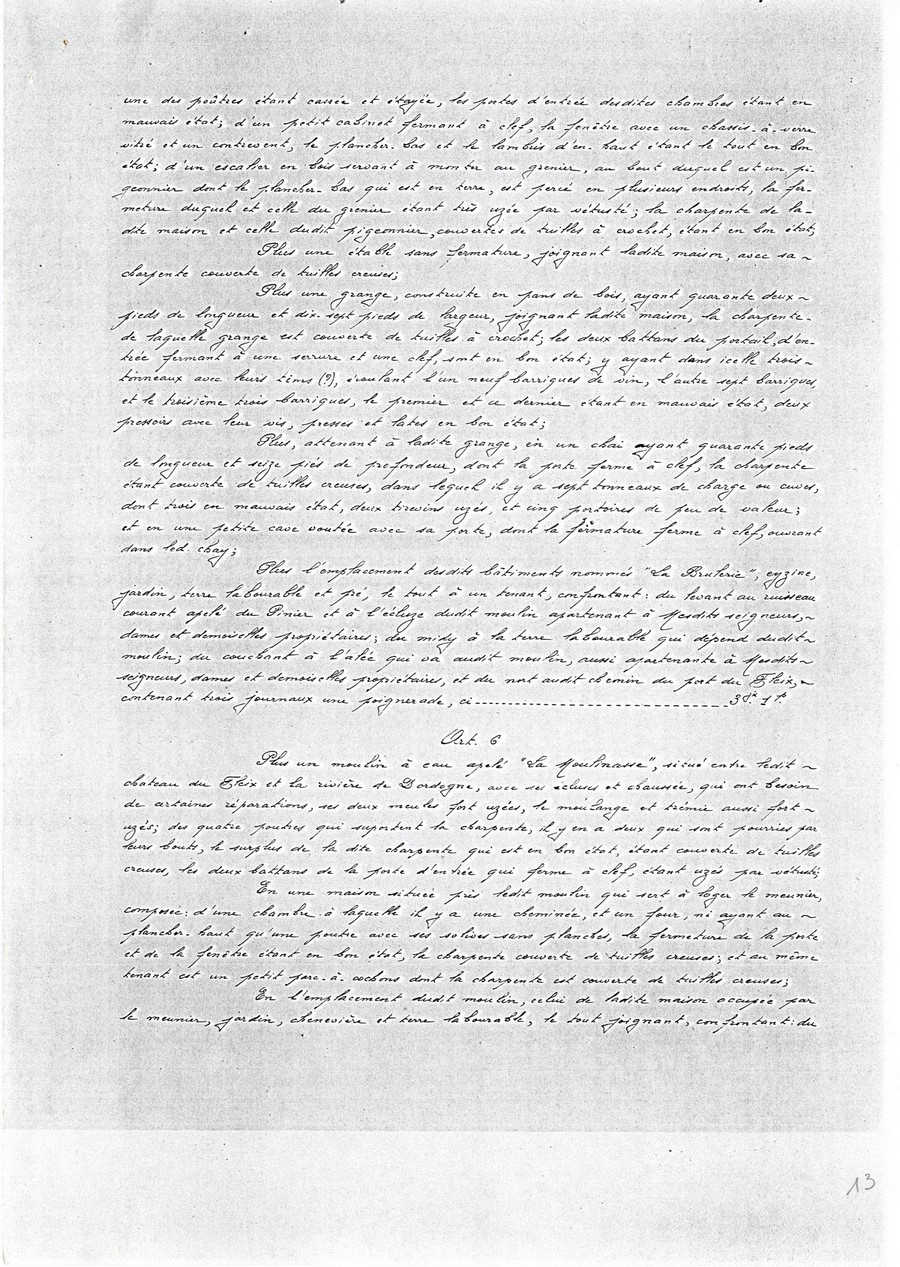 une des poûtres étant cassée et étayée, les portes d'entrée desdites chambres étant en
mauvais état; d'un petit cabinet fermant à clef, la fenêtre avec un chassis-à-verre
vitré et un contrevent, le plancher-bas et le lambris d'en-haut étant le tout en bon
état; d'un escalier en bois servant à monter au grenier, au bout duquel est un pi-
geonnier dont le plancher-bas qui est en terre, est percé en plusieurs endroits, la fer-
meture duquel et celle du grenier étant très uzée par vétusté; la charpente de la-
dite maison et celle dudit pigeonnier, couvertes de tuilles à crochet, étant en bon état;
Plus une étable sans fermature, joignant ladite maison, avec sa ~
charpente couverte de tuilles creuses;
Plus une grange, construite en pans de bois, ayant quarante deux ~
pieds de longueur et dix-sept pieds de largeur, joignant ladite maison, la charpente-
de laquelle grange est couverte de tuilles à crochet; les deux battans du portail d'en-
trée fermant à une serrure et une clef sont en bon état; y ayant dans icelle trois ~
tonneaux avec leurs tims (?), écoulant l'un neuf barriques de vin, l'autre sept barriques,
et le troisième trois barriques, le premier et ce dernier étant en mauvais état, deux
pressoirs avec leur vis, presses et lates en bon état;
Plus, attenant à ladite grange, en un chai ayant quarante pieds
de longueur et seize piés de profondeur, dont la porte ferme à clef, la charpente
étant couverte de tuilles creuses, dans lequel il y a sept tonneaux de charge ou cuves,
dont trois en mauvais état, deux tirevins uzés, et cinq portoires de peu de valeur;
et en une petite cave voutée avec sa porte, dont la fermature ferme à clef, ouvrant
dans led. chay;
Plus l'emplacement desdits bâtiments nommés "La Bruterie", eyzine,
jardin, terre labourable et pré, le tout à un tenant, confrontant: du levant au ruisseau
courant apelé du Pinier et à l'écluze dudit moulin apartenant à Mesdits seigneurs, ~
dames et demoiselles propriétaires; du midy à la terre labourable qui dépend dudit ~
moulin; du couchant à l'alée qui va audit moulin, aussi apartenante à Mesdits ~
seigneurs, dames et demoiselles propriétaires, et du nort audit chemin du port du Fleix, ~
contenant trois journaux une poignerade, ci ---------- 3 Jx 1 P.
Art. 6
Plus un moulin à eau apelé "La Moulinasse", situé entre ledit ~
chateau du Fleix et la rivière de Dordogne, avec ses écluses et chaussée, qui ont besoin
de certaines réparations, ses deux meules fort uzées, le moulange et trémie aussi fort ~
uzés; des quatre poutres qui suportent la charpente, il y en a deux qui sont pourries par
leurs bouts, le surplus de la dite charpente qui est en bon état, étant couverte de tuilles
creuses, les deux battans de la porte d'entrée qui ferme à clef, étant uzés par vétusté;
En une maison située près ledit moulin qui sert à loger le meunier,
composée: d'une chambre à laquelle il y a une cheminée, et un four, ni ayant au ~
plancher-haut qu'une poutre avec ses solives sans planches, la fermeture de la porte
et de la fenêtre étant en bon état, la charpente couverte de tuilles creuses; et au même
tenant est un petit parc-à-cochons dont la charpente est couverte de tuilles creuses;
En l'emplacement dudit moulin, celui de ladite maison occupée par
le meunier, jardin, chenevière et terre labourable, le tout joignant, confrontant: du
13